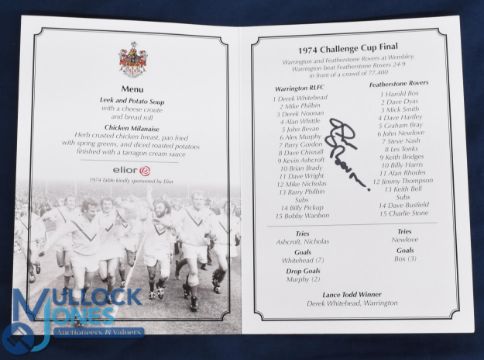 Menu
Leek and Potato Soup
with a cheese croute
and bread roll
Chicken Milanaise
Herb crusted chicken breast, pan fried
with spring greens, and diced roasted potatoes
finished with a tarragon cream sauce
elior
1974 table kindly sponsored by Elior
1974 Challenge Cup Final
Warrington and Featherstone Rovers at Wembley.
Warrington beat Featherstone Rovers 24-9
in front of a crowd of 77,400
Warrington RLFC
1 Derek Whitehead
2 Mike Philbin
3 Derek Noonan
4 Alan Whittle
5 John Bevan
6 Alex Murphy
7 Parry Gordon
8 Dave Chisnall
9 Kevin Ashcroft
10 Brian Brady
11 Dave Wright
12 Mike Nicholas
13 Barry Philbin
Subs
14 Billy Pickup
15 Bobby Wanbon
Tries
Ashcroft, Nicholas
Goals
Whitehead (7)
Drop Goals
Murphy (2)
Featherstone Rovers
1 Harold Box
2 Dave Dyas
3 Mick Smith
4 Dave Hartley
5 Graham Bray
6 John Newlove
7 Steve Nash
8 Les Tonks
9 Keith Bridges
10 Billy Harris
11 Alan Rhodes
12 Jimmy Thompson
13 Keith Bell
Subs
14 Dave Busfield
15 Charlie Stone
Tries
Newlove
Goals
Box (3)
Lance Todd Winner
Derek Whitehead, Warrington
MULLOCK
JONES
Auctioneers & Valuers